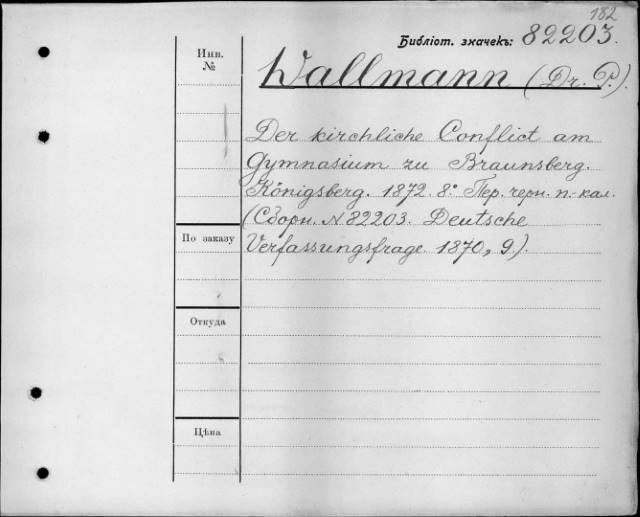 182
Библіот. значекъ: 82203.
Инв.
№
Wallmann (Dr. P.).
Der kirchliche Conflict am
Gymnasium zu Braunsberg.
Königsberg. 1872. 8.° Пер. черн. п.-кал.
(Сборн. N 82203. Deutsche
По заказу
Verfassungsfrage. 1870, 9.).
Откуда
Цѣна